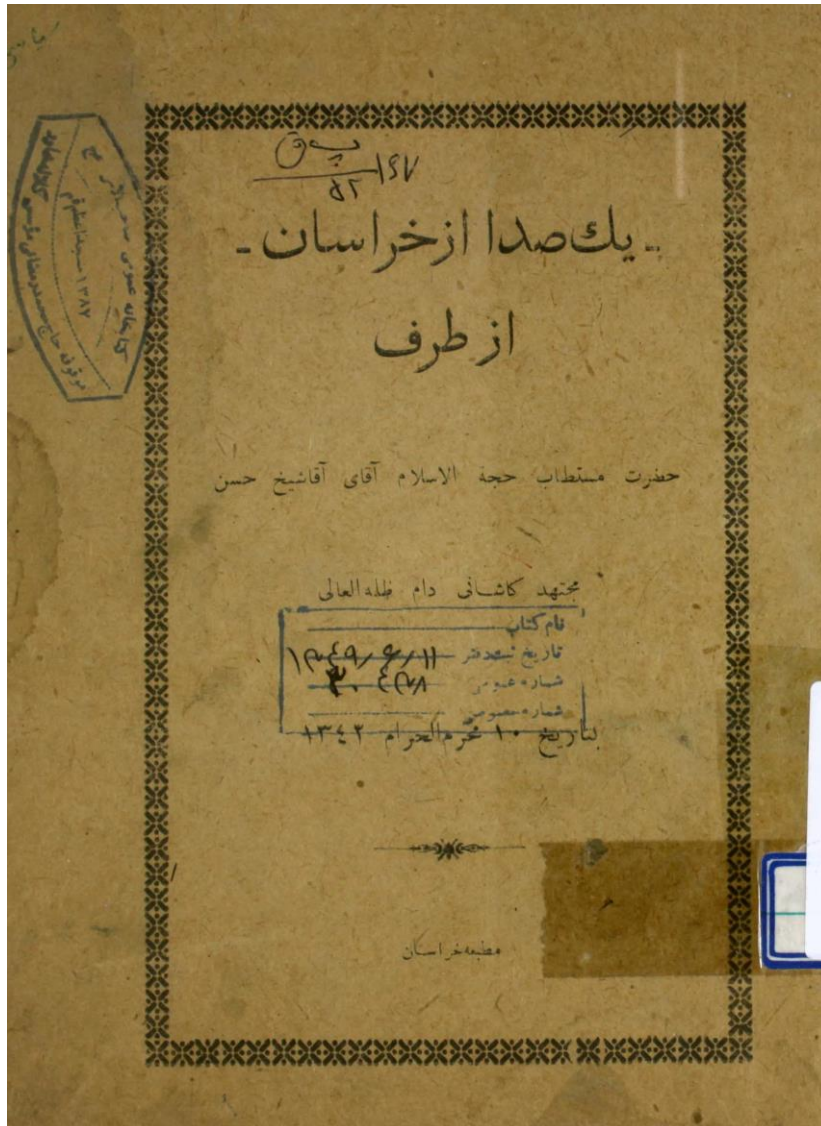 ۱۶۷
۵۲
- يك صدا از خراسان -
از طرف
حضرت مستطاب حجة الاسلام آقای آقاشیخ حسن
مجتهد کاشانی دام ظله العالی
نام کتاب
تاریخ ثبت دفتر ۱۳۴۹/۶/۱۱
شماره عمومی
شماره خصوصی
بتاریخ ۱۰ محرم الحرام ۱۳۴۲
مطبعه خراسان
کتابخانه عمومی
۱۳۸۷ مسجد اعظم قم
موقوفه حاج